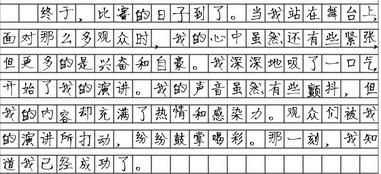 终于，比赛的日子到了。当我站在舞台上，
面对那么多观众时，我的心中虽然还有些紧张，
但更多的是兴奋和自豪。我深深地吸了一口气，
开始了我的演讲。我的声音虽然有些颤抖，但
我的内容却充满了热情和感染力。观众们被我
的演讲所打动，纷纷鼓掌喝彩。那一刻，我知
道我已经成功了。